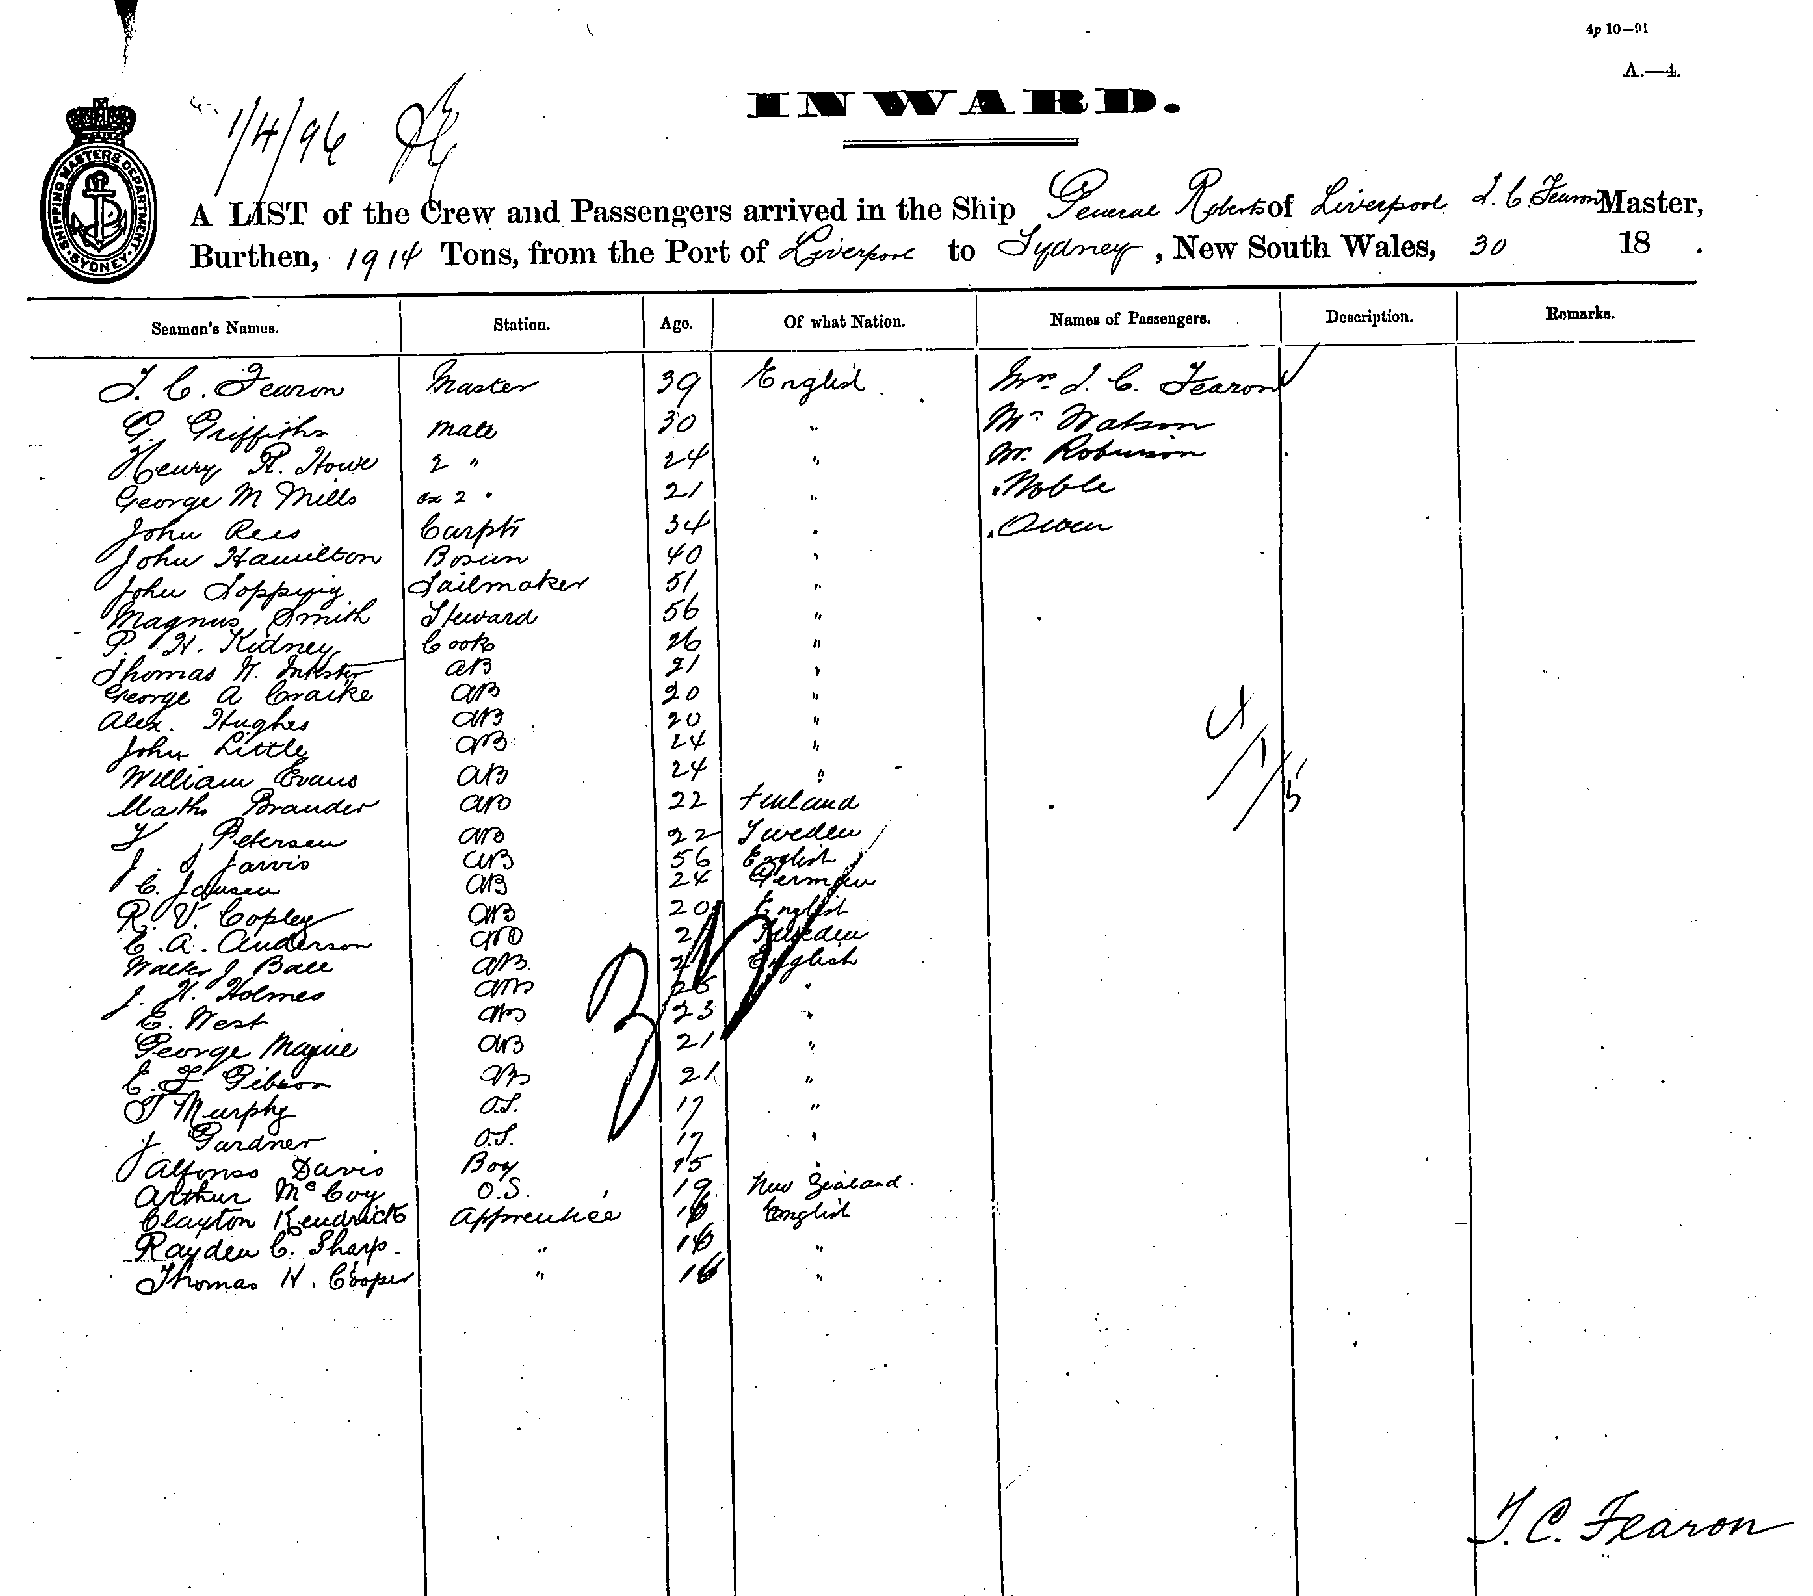 4p 10—91
A.—4.
1/4/96
INWARD.
SHIPPING MASTERS DEPARTMENT SYDNEY
A LIST of the Crew and Passengers arrived in the Ship General Roberts of Liverpool T. C. Fearon Master,
Burthen, 1914 Tons, from the Port of Liverpool to Sydney, New South Wales, 30 18 .
Seamen's Names. Station. Age. Of what Nation. Names of Passengers. Description. Remarks.
T. C. Fearon Master 39 English Mrs. T. C. Fearon
G. Griffiths Mate 30 " Mr Watson
Henry R. Howe 2 " 24 " Mr. Robinson
George M Mills ex 2 " 21 " " Noble
John Rees Carptr 34 " " Owen
John Hamilton Bosun 40 "
John Topping Sailmaker 51 "
Magnus Smith Steward 56 "
P. H. Kidney Cook 26 "
Thomas W. AB 21 "
George A Craike AB 20 "
Alex. Hughes AB 20 "
John Little AB 24 "
William Evans AB 24 "
Maths Brander AB 22 Finland
Petersen AB 22 Sweden
J. J Jarvis AB 56 English
C. Jansen AB 24 German
R. V. Copley AB 20 English
C. A. Anderson AB 2 Sweden
Walter J Ball AB. 2 English
J. H. Holmes AB 25 "
E. West AB 23 "
George Mayne AB 21 "
E. F Gibson AB 21 "
T Murphy O.S. 17 "
J. Gardner O.S. 17 "
Alfonso Davis Boy 15 "
Arthur McCoy O.S. 19 New Zealand.
Claxton Kendrick Apprentice 16 English
Rayden C. Sharp. " 16 "
Thomas H. Cooper " 16 "
32
4/1/5
T. C. Fearon